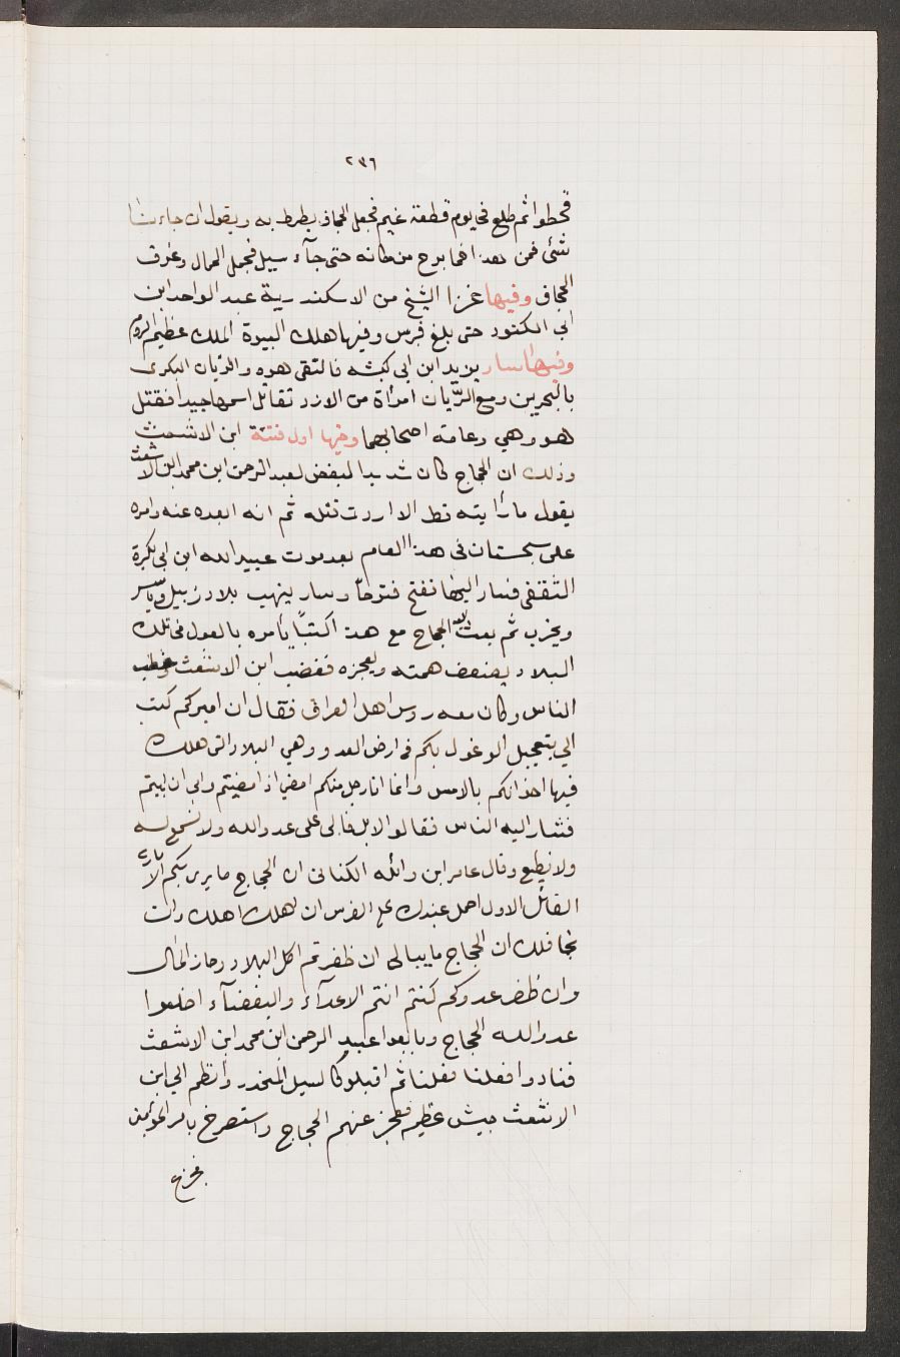 ٢٣٦
قحطوا ثم طلع في يوم قطعة غيم فجعل الجاز يطرط به ويقول ان جاءنا
شئ فمن هذا فما برح من مكانه حتى جآء سيل فحمل الجمال وغرق
الحجاف وفيها غزا الشيخ من الاسكندرية عبد الواحد ابن
ابي الكنود حتى بلغ قبرس وفيها هلك اليوة الملك عظيم الروم
وفيها سار يزيد ابن ابي كبشه فالتقى هو والريان البكرى
بالبحرين ومع الريّان امرأة من الازد تقاتل اسمها جيدا فقتل
هو وهي وعامته اصحابهما وفيها اول فتنة ابن الاشعث
وذلك ان الحجاج كان شديد البغض لعبد الرحمن ابن محمد ابن الاشعث
يقول ما رأيته قط الا اردت قتله ثم انه ابعده عنه وامره
على سجستان فى هذا العام بعد موت عبيد الله ابن ابى بكرة
الثقفى فسار اليها ففتح فتوحاً وسار ينهب بلاد زبيل وياسر
ويخرب ثم بعث اليه الحجاج مع هذا كتباً يأمره بالغول فى تلك
البلاد يضعف همته ويعجزه فغضب ابن الاشعث وخطب
الناس وكان معه روس اهل العراق فقال ان اميركم كتب
الي بتعجيل الوغول بكم فى ارض العدو وهي البلاد التى هلك
فيها اخوانكم بالامس وانما انا رجل منكم امضي اذا مضيتم وابى ان ابيتم
فشار اليه الناس فقالوا لا بل نابى على عدو الله ولا نسمع له
ولا نطيع وقال عامر ابن واثله الكنانى ان الحجاج ما يرى بكم الا ما رأى
القائل الاول احمل عبدك على الفرس ان هلك اهلك وان
نجا فلك ان الحجاج ما يبالى ان ظفرتم اكل البلاد وحاز المال
وان ظفر عدوكم كنتم انتم الاعدآء والبغضآء اخلعوا
عدو الله الحجاج وبايعوا عبيد الرحمن ابن محمد ابن الاشعث
فنادوا فعلنا فعلنا ثم اقبلو كالسيل المنحدر وانظم الي ابن
الاشعث جيش عظيم فعجز عنهم الحجاج واستصرخ بامير المؤمنين
فخرج